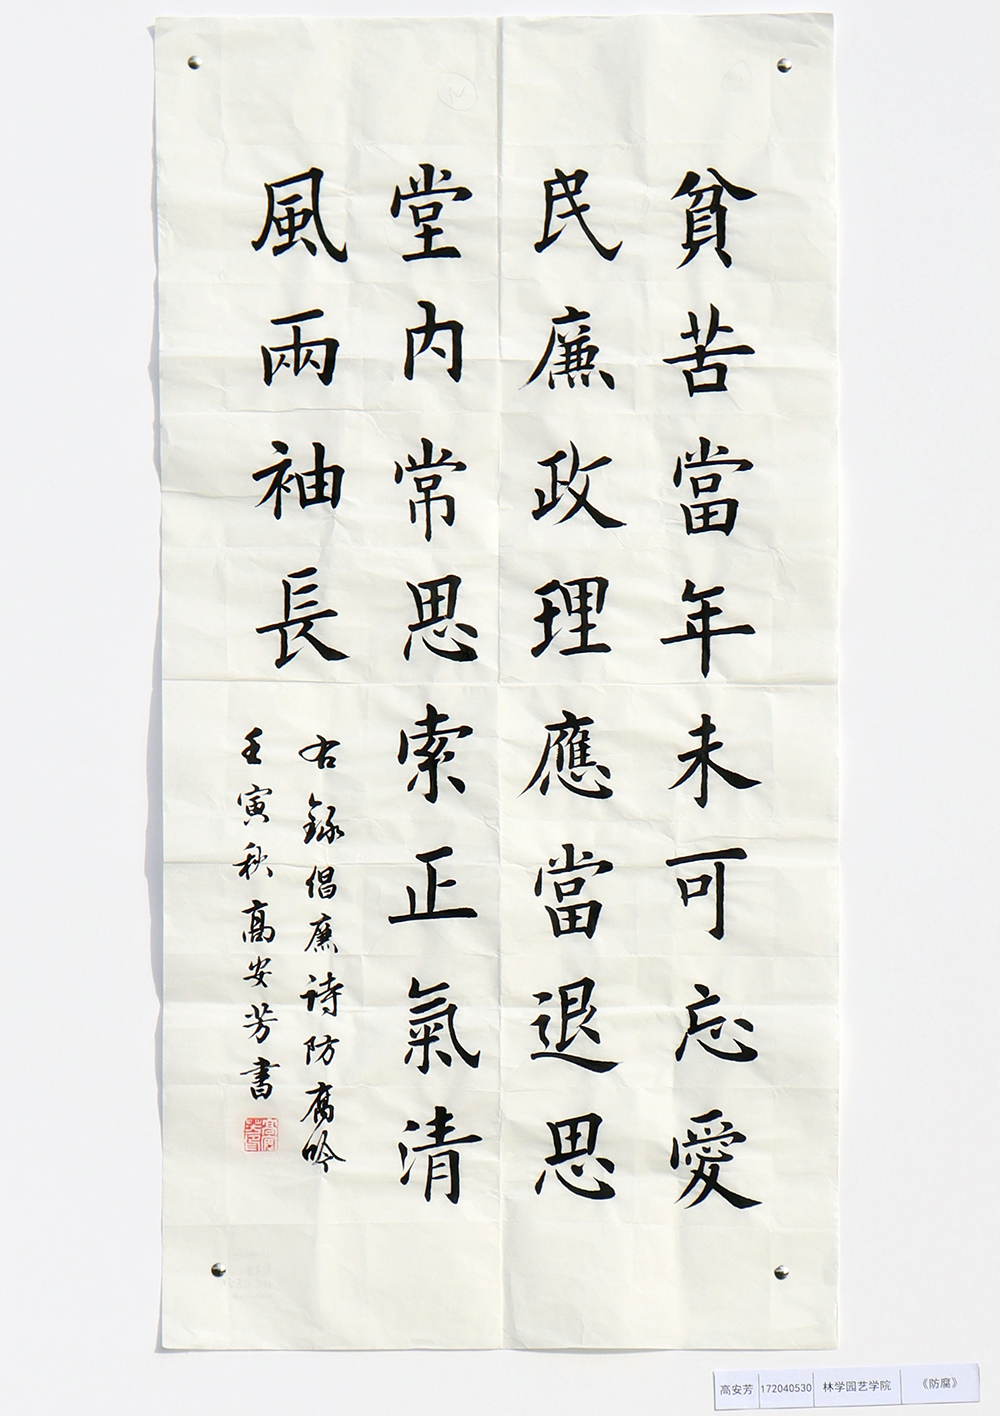 貧苦當年未可忘愛
民廉政理應當退思
堂内常思索正氣清
風兩袖長
右錄倡廉诗防腐吟
壬寅秋高安芳書
高安芳 172040530 林学园艺学院 《防腐》